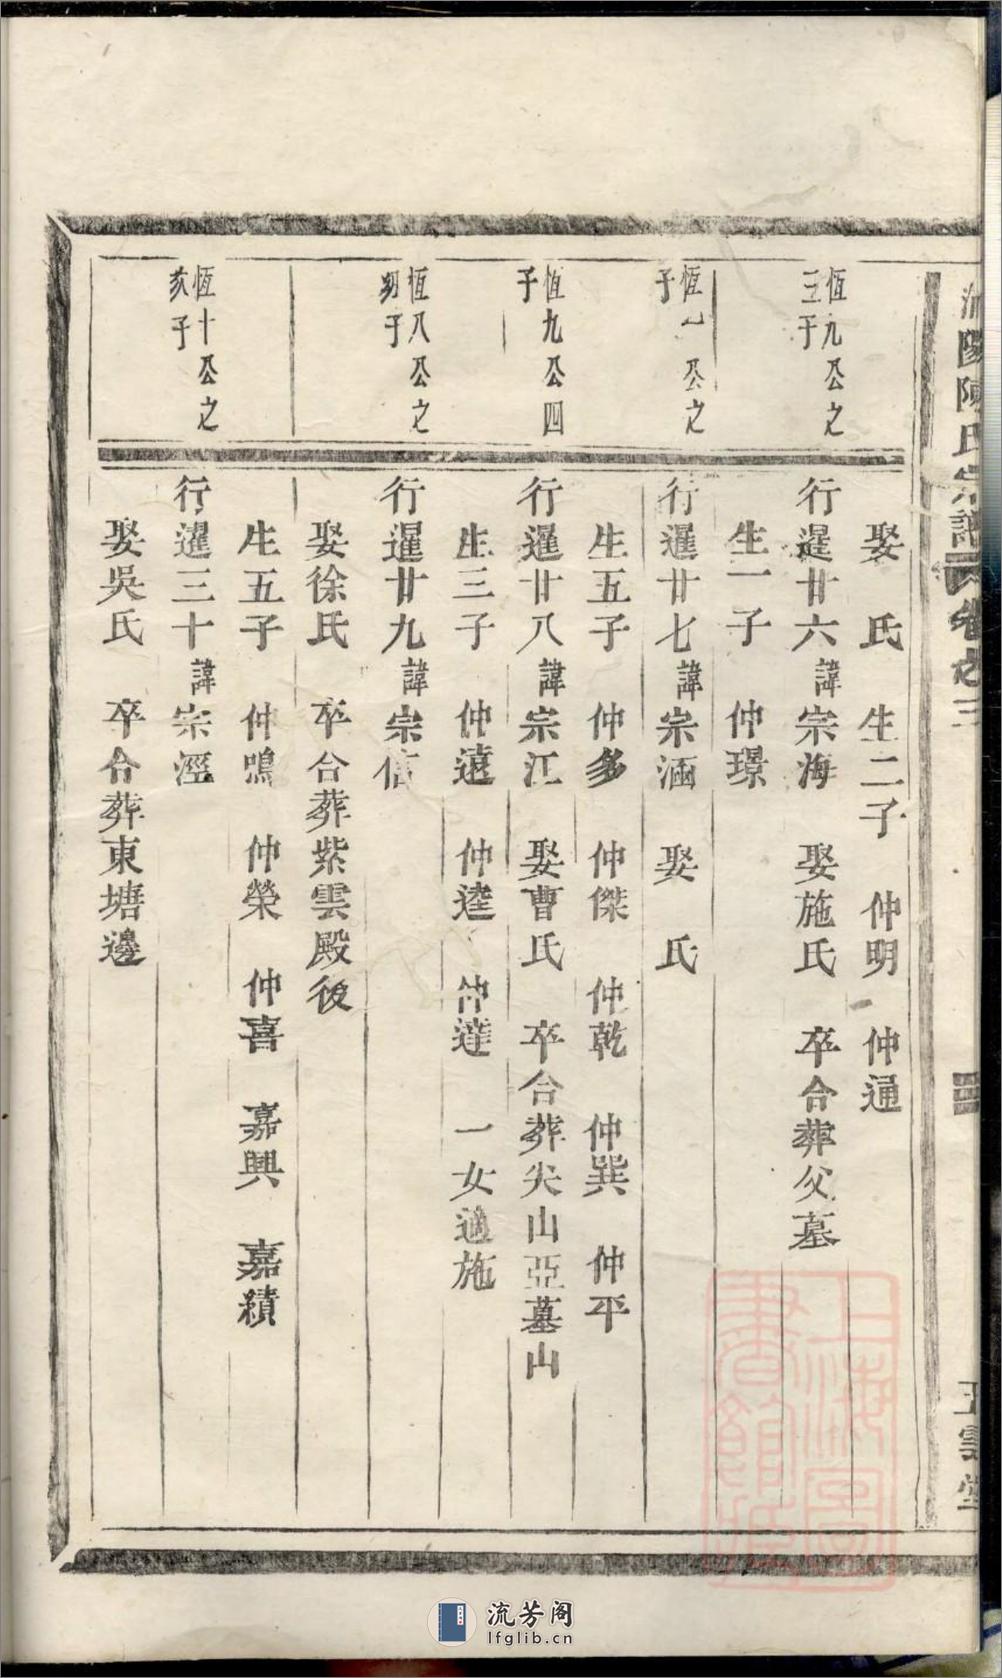 陽陳氏宗譜 卷之三
五雲堂
娶 氏 生二子 仲明 仲通
恆九公之三子
行暹廿六諱宗海 娶施氏 卒合葬父墓
生一子 仲璟
恆一公之子
行暹廿七諱宗涵 娶 氏
生五子 仲多 仲傑 仲乾 仲巽 仲平
恆九公四子
行暹廿八諱宗江 娶曹氏 卒合葬尖山亞墓山
生三子 仲遠 仲逵 仲達 一女適施
恆八公之 子
行暹廿九諱宗信
娶徐氏 卒合葬紫雲殿後
生五子 仲鳴 仲榮 仲喜 嘉興 嘉績
恆十公之 子
行暹三十諱宗涇
娶吳氏 卒合葬東塘邊
上海圖書館藏
流芳阁
lfglib.cn